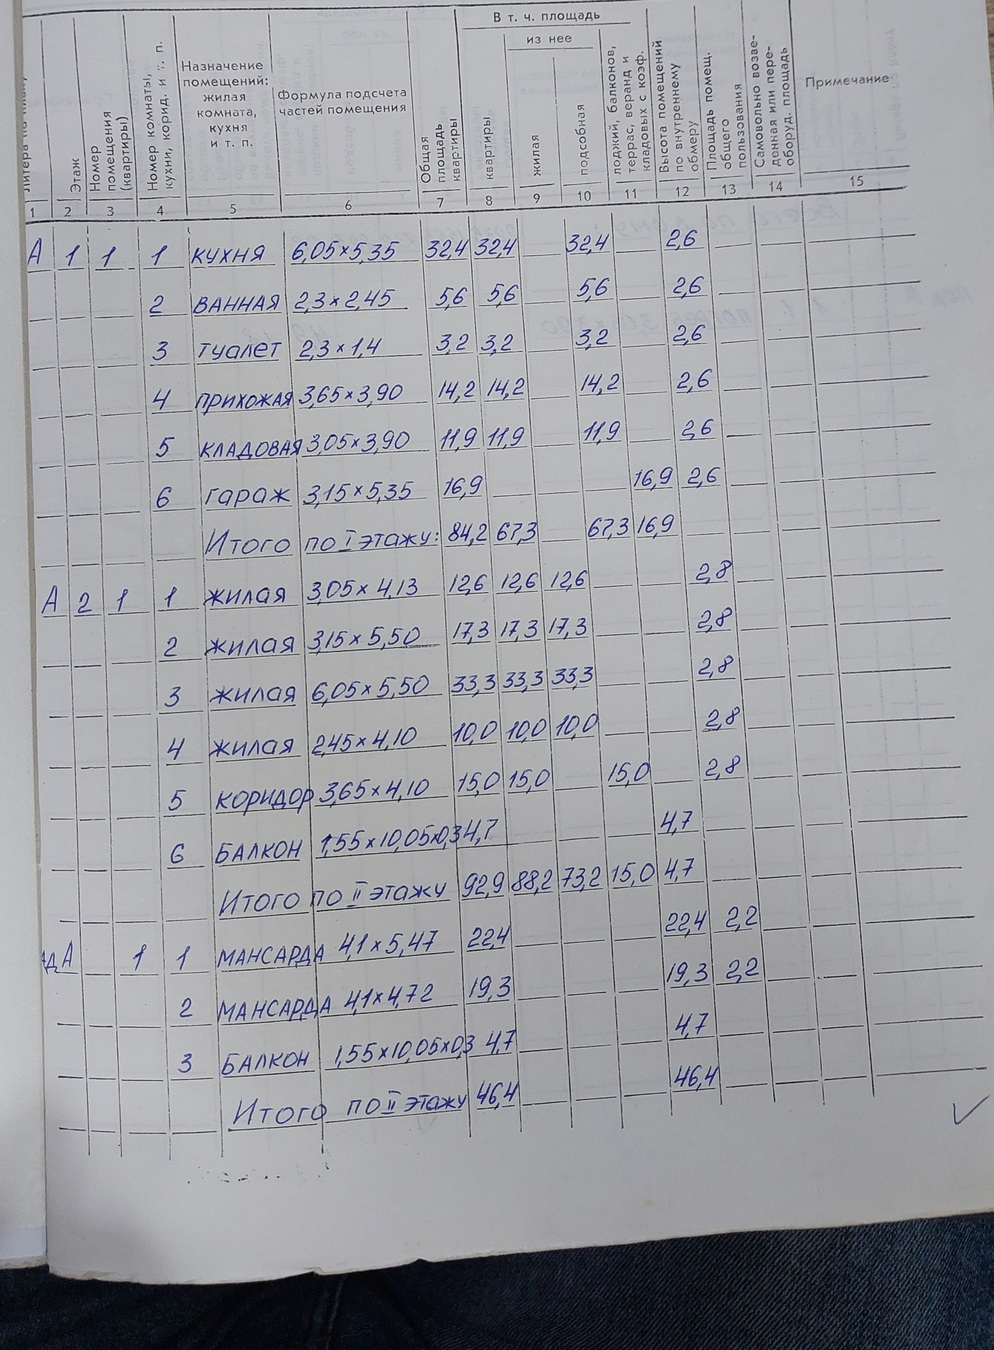 Литера по плану
Этаж
Номер помещения (квартиры)
Номер комнаты, кухни, корид. и т. п.
Назначение помещений: жилая комната, кухня и т. п.
Формула подсчета частей помещения
Общая площадь квартиры
В т. ч. площадь
квартиры
из нее
жилая
подсобная
лоджий, балконов, террас, веранд и кладовых с коэф.
Высота помещений по внутреннему обмеру
Площадь помещ. общего пользования
Самовольно возведенная или переоборуд. площадь
Примечание
1 2 3 4 5 6 7 8 9 10 11 12 13 14 15
А 1 1 1 кухня 6,05×5,35 32,4 32,4 32,4 2,6
2 ванная 2,3×2,45 5,6 5,6 5,6 2,6
3 туалет 2,3×1,4 3,2 3,2 3,2 2,6
4 прихожая 3,65×3,90 14,2 14,2 14,2 2,6
5 кладовая 3,05×3,90 11,9 11,9 11,9 2,6
6 гараж 3,15×5,35 16,9 16,9 2,6
Итого по I этажу: 84,2 67,3 67,3 16,9
А 2 1 1 жилая 3,05×4,13 12,6 12,6 12,6 2,8
2 жилая 3,15×5,50 17,3 17,3 17,3 2,8
3 жилая 6,05×5,50 33,3 33,3 33,3 2,8
4 жилая 2,45×4,10 10,0 10,0 10,0 2,8
5 коридор 3,65×4,10 15,0 15,0 15,0 2,8
6 балкон 1,55×10,05×0,3 4,7 4,7
Итого по II этажу 92,9 88,2 73,2 15,0 4,7
А 1 1 мансарда 4,1×5,47 22,4 22,4 2,2
2 мансарда 4,1×4,72 19,3 19,3 2,2
3 балкон 1,55×10,05×0,3 4,7 4,7
Итого по II этажу 46,4 46,4